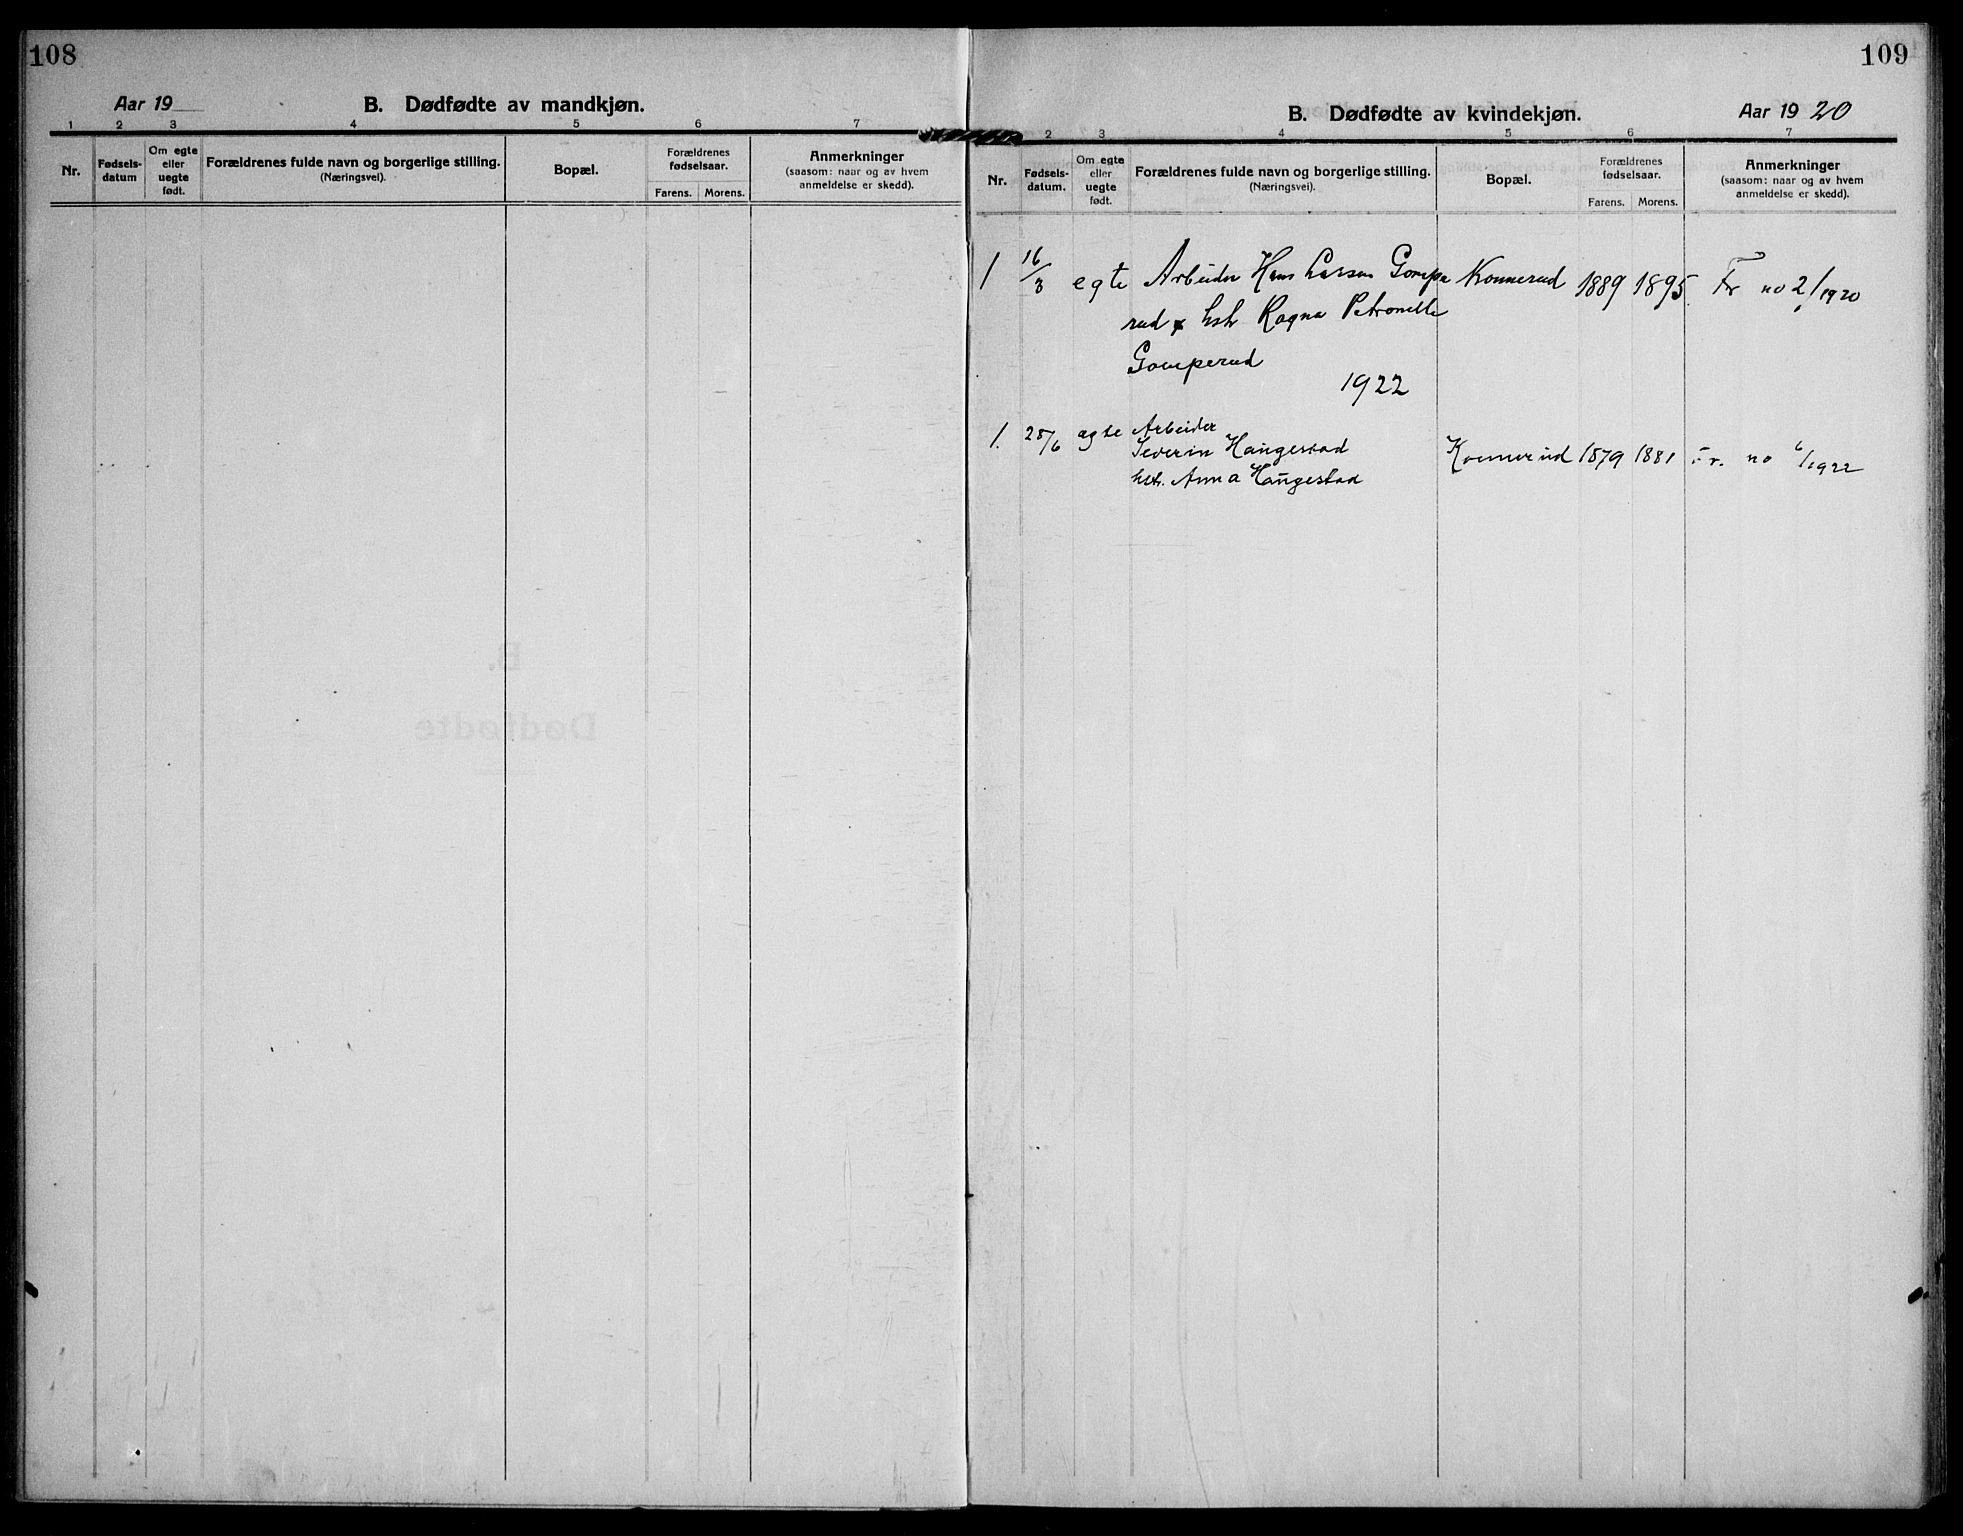 108
Aar 19
B. Dødfødte av mandkjøn.
1 2 3 4 5 6 7
Nr.
Fødsels-
datum
Om egte
eller
uegte
født.
Forældrenes fulde navn og borgerlige stilling.
(Næringsvei).
Bopæl.
Forældrenes
fødselsaar.
Farens. Morens.
Anmerkninger
(saasom: naar og av hvem
anmeldelse er skedd).
109
B. Dødfødte av kvindekjøn.
Aar 1920
2 3 4 5 6 7
Nr.
Fødsels-
datum.
Om egte
eller
uegte
født.
Forældrenes fulde navn og borgerlige stilling.
(Næringsvei).
Bopæl.
Forældrenes
fødselsaar.
Farens. Morens.
Anmerkninger
(saasom: naar og av hvem
anmeldelse er skedd).
1 16/3 egte Arbeider Hans Larsen Gompe Konnerud 1889 1895. Fr no 2/1920
rud & hstr Ragna Petronelle
Gomperud
1922
1. 28/6 ægte Arbeider
Severin Haugestad Konnerud 1879 1881 Fr. no 6/1922
hstr. Anna Haugestad